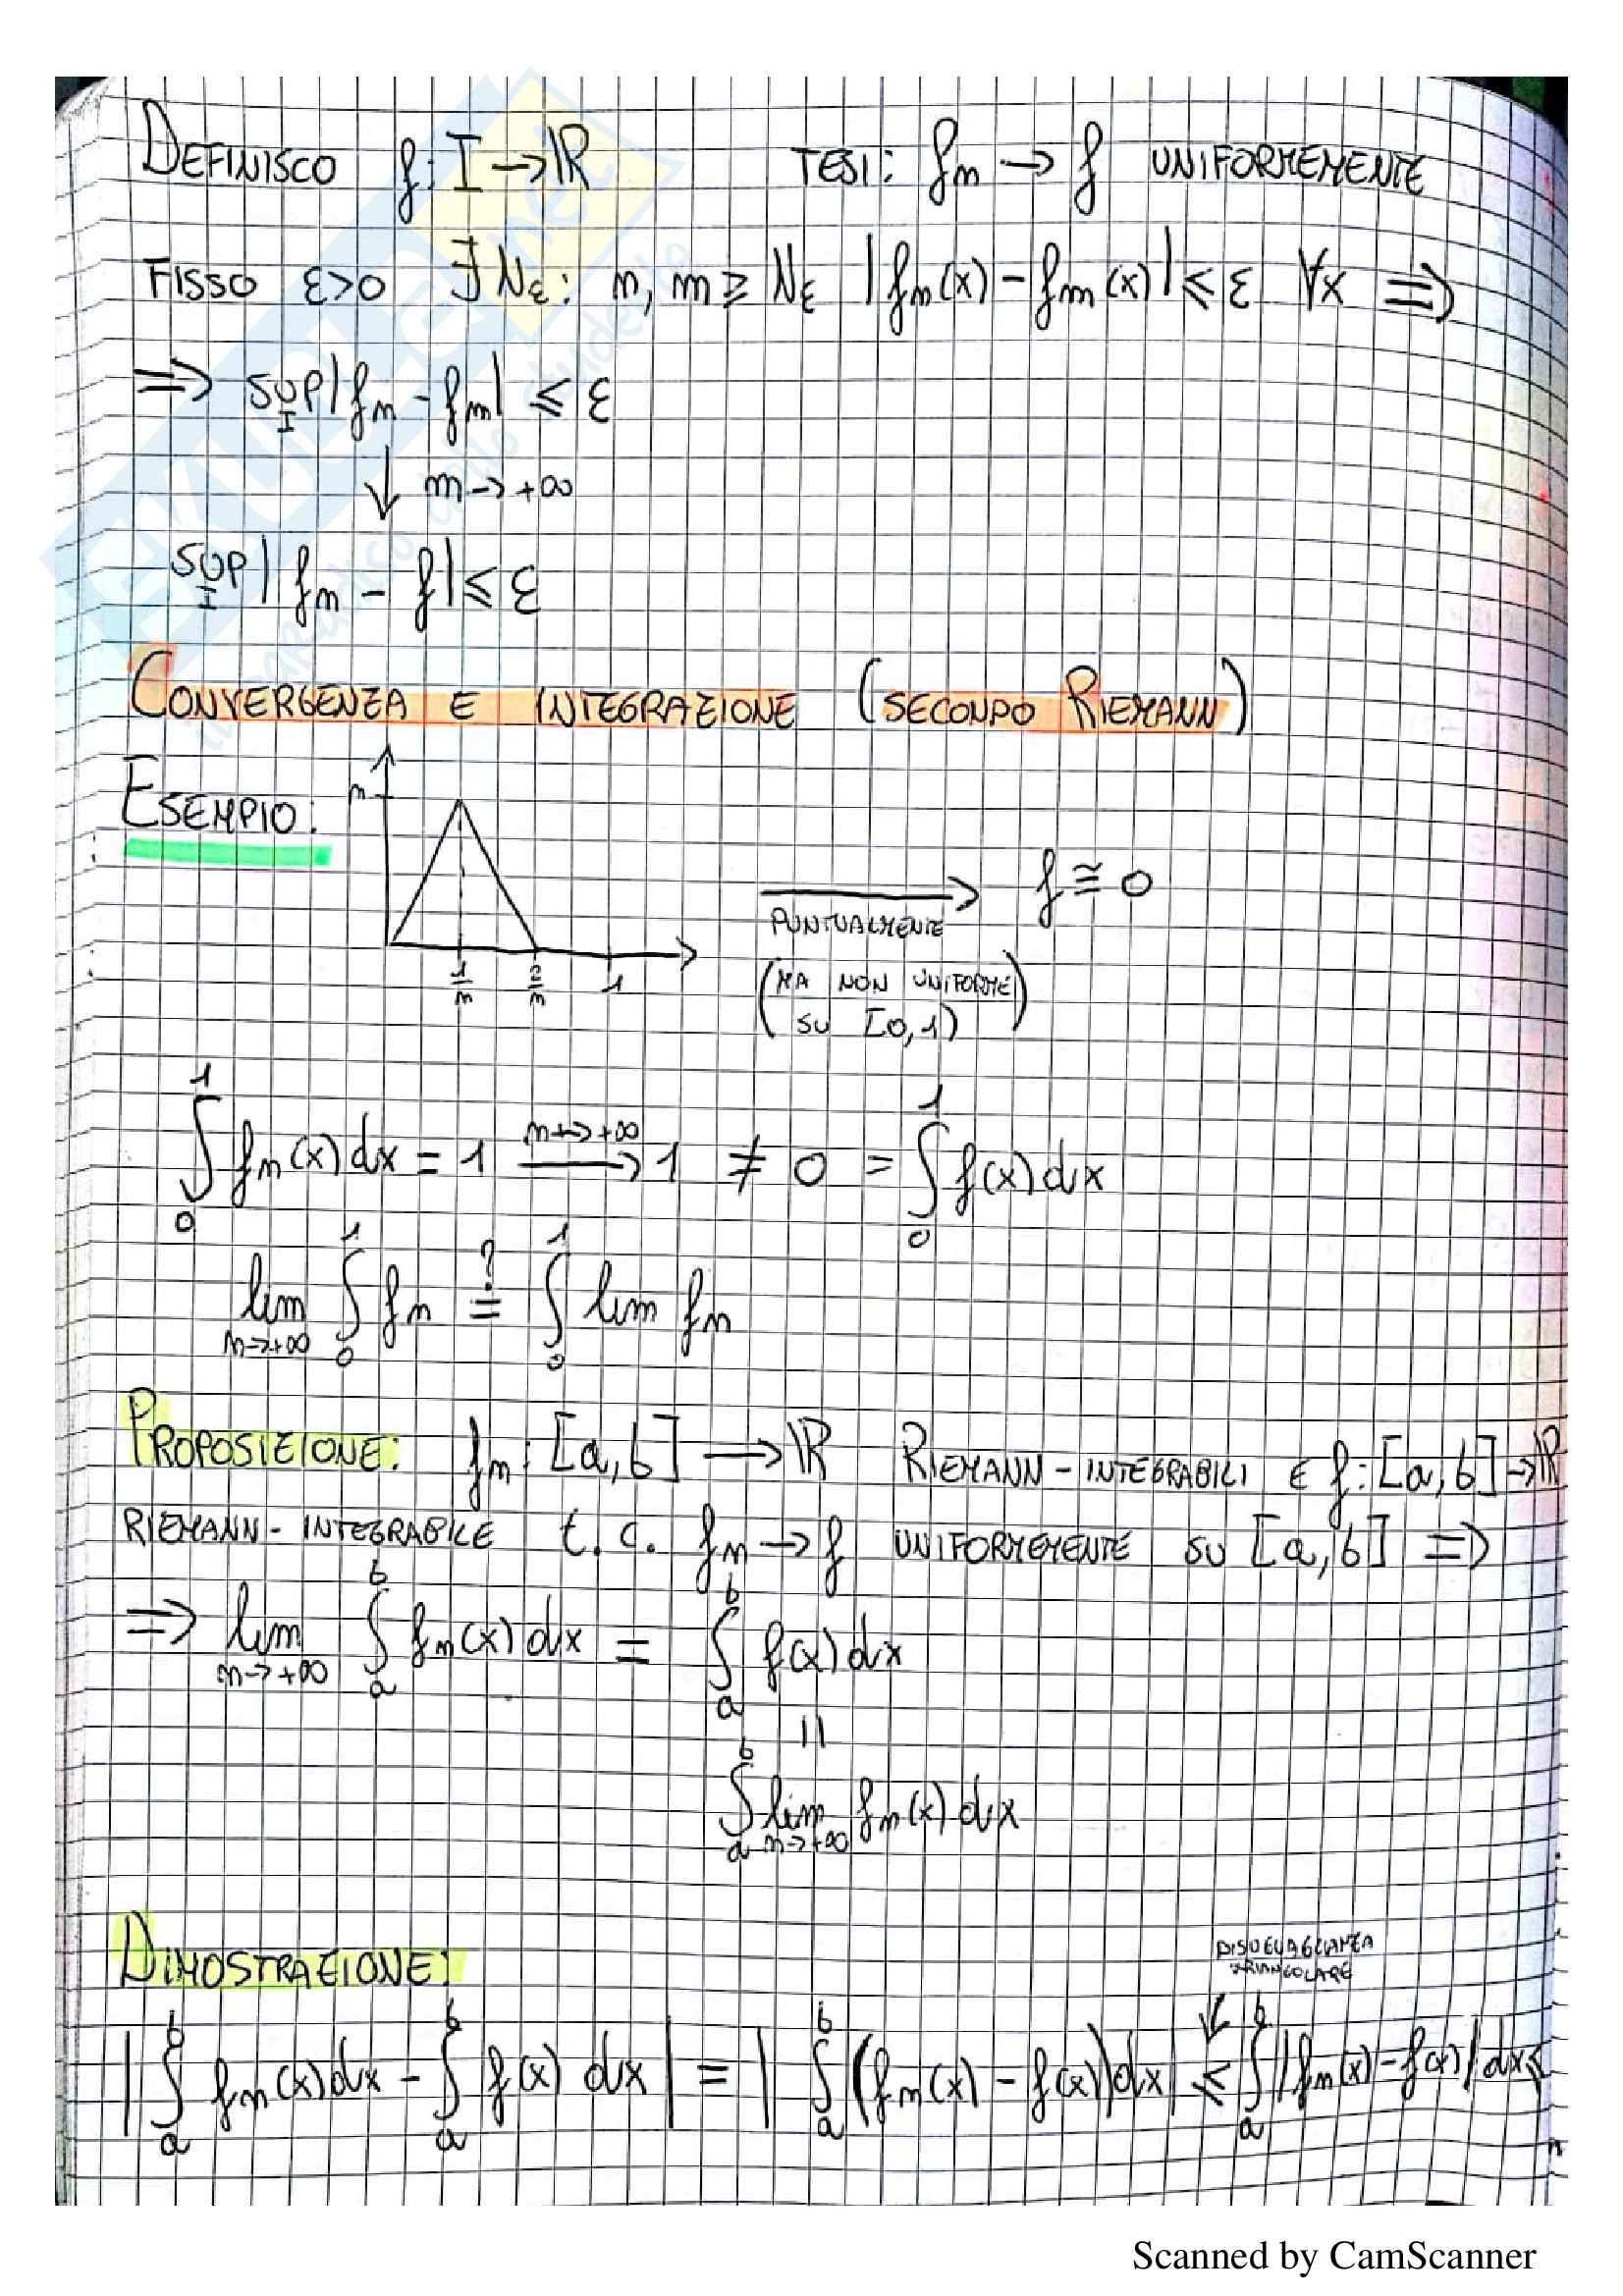 DEFINISCO f: I → ℝ TESI: fn → f UNIFORMEMENTE
FISSO ε>0 ∃ Nε: n, m ≥ Nε |fn(x) - fm(x)| ≤ ε ∀x ⇒
⇒ SUP|fn - fm| ≤ ε
I
↓ m→+∞
SUP|fn - f| ≤ ε
I
CONVERGENZA E INTEGRAZIONE (SECONDO RIEMANN)
ESEMPIO:
n
1/n 2/n 1
→ f ≅ 0
PUNTUALMENTE
(MA NON UNIFORME
SU [0,1])
∫₀¹ fn(x)dx = 1 →(n→+∞) 1 ≠ 0 = ∫₀¹ f(x)dx
lim n→+∞ ∫₀¹ fn =? ∫₀¹ lim fn
PROPOSIZIONE: fn: [a,b] → ℝ RIEMANN-INTEGRABILI E f: [a,b] → ℝ
RIEMANN-INTEGRABILE t.c. fn → f UNIFORMEMENTE SU [a,b] ⇒
⇒ lim n→+∞ ∫ₐᵇ fn(x)dx = ∫ₐᵇ f(x)dx
||
∫ₐᵇ lim n→+∞ fn(x)dx
DIMOSTRAZIONE:
DISUGUAGLIANZA
TRIANGOLARE
|∫ₐᵇ fn(x)dx - ∫ₐᵇ f(x) dx| = |∫ₐᵇ (fn(x) - f(x))dx| ≤ ∫ₐᵇ |fn(x) - f(x)| dx ≤
Scanned by CamScanner